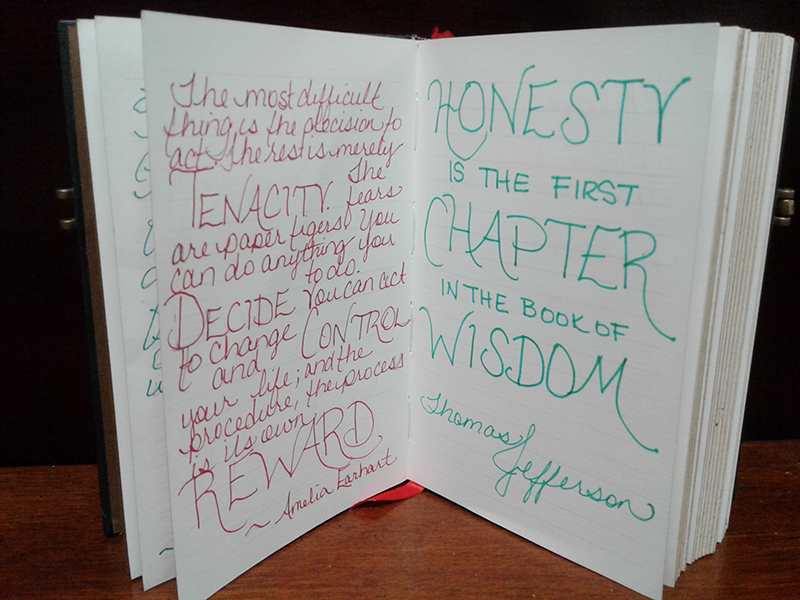 The most difficult
thing is the decision to
act. The rest is merely
TENACITY. The
fears
are paper tigers. You
can do anything you
DECIDE to do.
You can act
to change
and CONTROL
your life; and the
procedure, the process
is its own
REWARD
~ Amelia Earhart
HONESTY
IS THE FIRST
CHAPTER
IN THE BOOK OF
WISDOM
Thomas
Jefferson